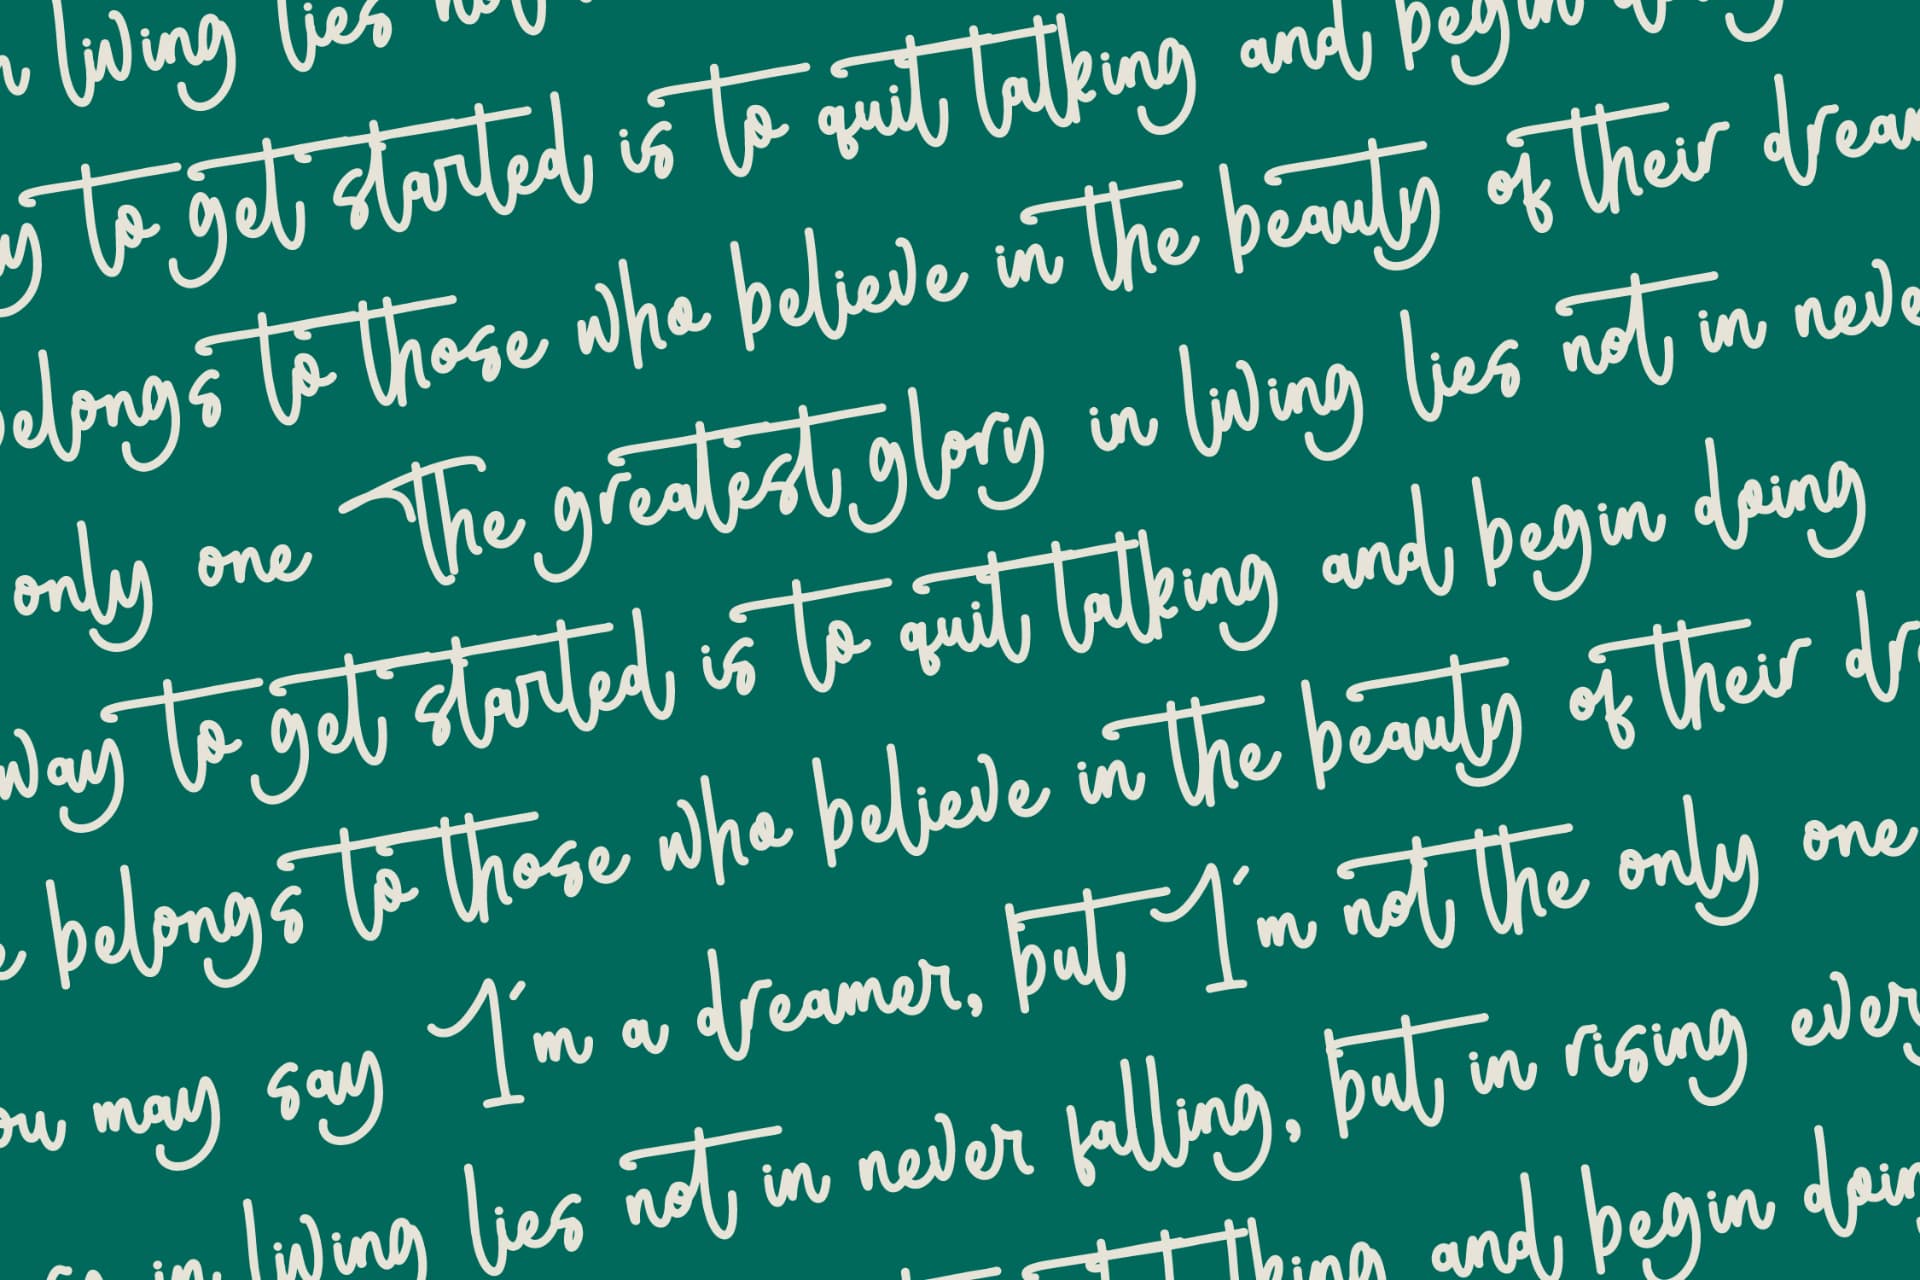 living lies not
to get started is to quit talking and begin
belongs to those who believe in the beauty of their
only one The greatest glory in living lies not in
way to get started is to quit talking and begin doing
belongs to those who believe in the beauty of their
may say I'm a dreamer, but I'm not the only one
in living lies not in never falling, but in rising
and begin